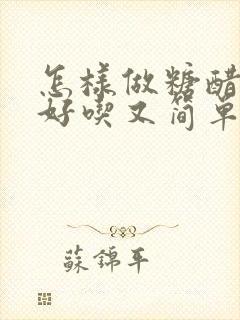 怎樣做糖醋
好喫又简单
蘇錦平